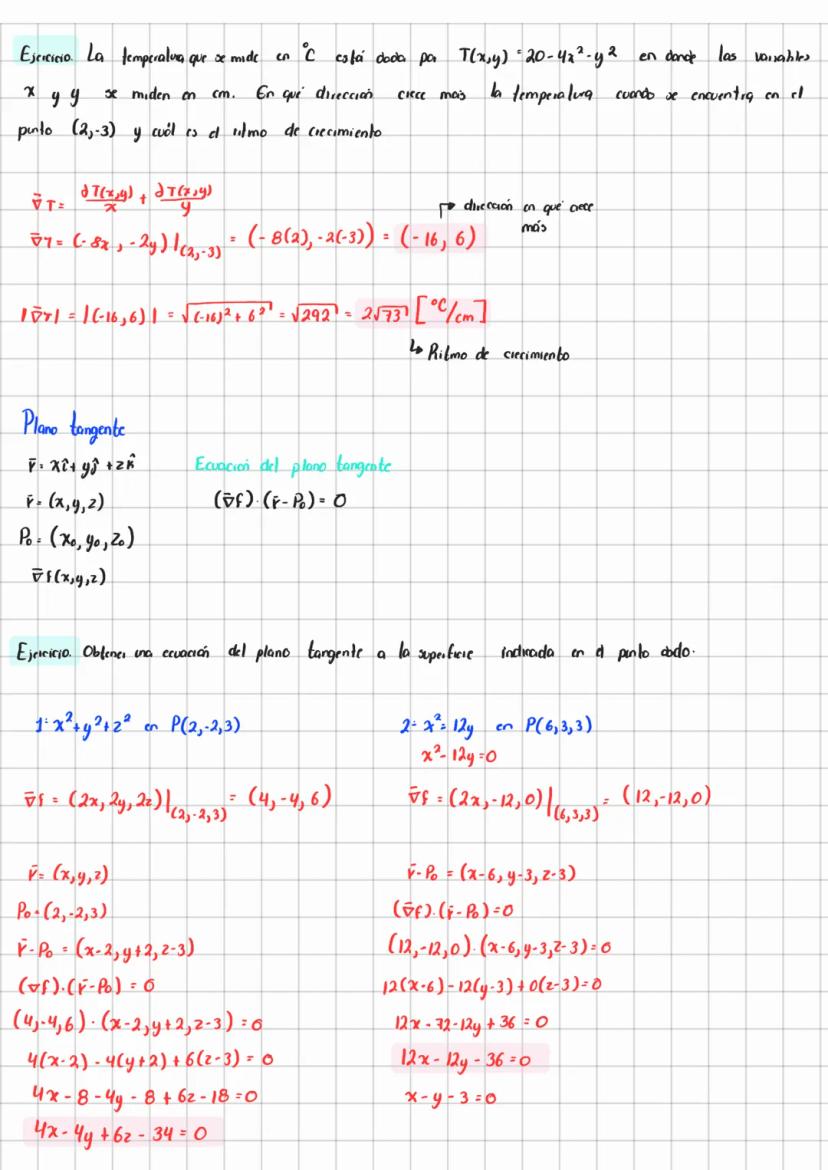 Ejercicio. La temperatura que se mide en °C está dada por T(x,y) = 20 - 4x² - y² en donde las variables
x y y se miden en cm. En qué dirección crece más la temperatura cuando se encuentra en el
punto (2,-3) y cuál es el ritmo de crecimiento
∇̄T = ∂T(x,y)/x + ∂T(x,y)/y
∇̄T = (-8x, -2y)|(2,-3) = (-8(2), -2(-3)) = (-16, 6)
↱ dirección en qué crece
más
|∇̄T| = |(-16,6)| = √((-16)² + 6²) = √292 = 2√73 [°C/cm]
↳ Ritmo de crecimiento
Plano tangente
r̄ = xî + yĵ + zk̂
r̄ = (x,y,z)
P₀ = (x₀, y₀, z₀)
∇̄f(x,y,z)
Ecuación del plano tangente
(∇̄f)·(r̄ - P₀) = 0
Ejercicio. Obtener una ecuación del plano tangente a la superficie indicada en el punto dado.
1- x² + y² + z² en P(2,-2,3)
∇̄f = (2x, 2y, 2z)|(2,-2,3) = (4, -4, 6)
r̄ = (x,y,z)
P₀ = (2,-2,3)
r̄ - P₀ = (x-2, y+2, z-3)
(∇f)·(r̄ - P₀) = 0
(4,-4,6) · (x-2, y+2, z-3) = 0
4(x-2) - 4(y+2) + 6(z-3) = 0
4x - 8 - 4y - 8 + 6z - 18 = 0
4x - 4y + 6z - 34 = 0
2- x² = 12y en P(6,3,3)
x² - 12y = 0
∇̄f = (2x, -12, 0)|(6,3,3) = (12, -12, 0)
r̄ - P₀ = (x-6, y-3, z-3)
(∇̄f)·(r̄ - P₀) = 0
(12,-12,0)·(x-6, y-3, z-3) = 0
12(x-6) - 12(y-3) + 0(z-3) = 0
12x - 72 - 12y + 36 = 0
12x - 12y - 36 = 0
x - y - 3 = 0